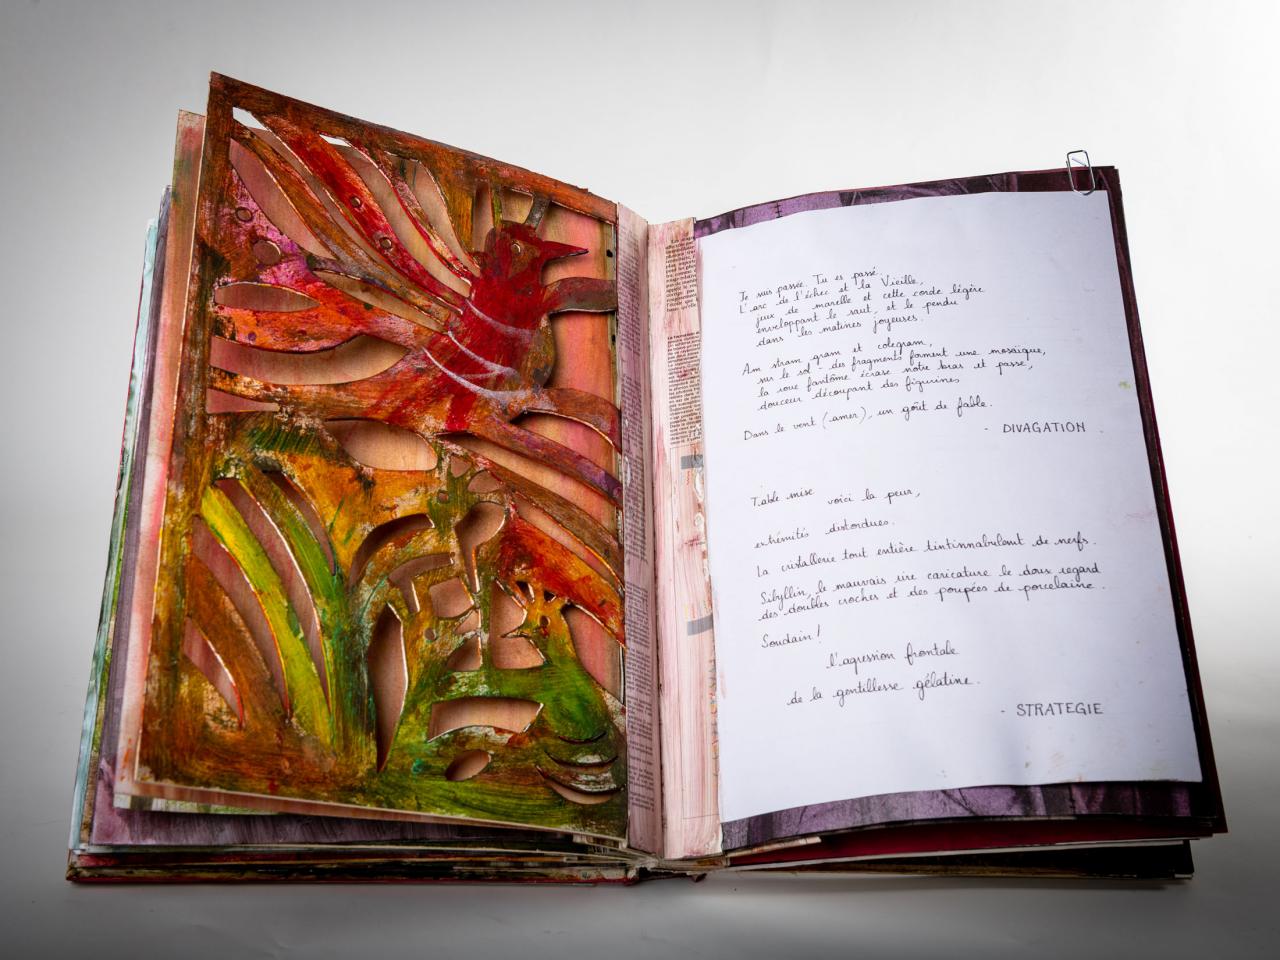 Je suis passée. Tu es passé.
L'arc de l'échec et la Vieille,
jeux de marelle et cette corde légère
enveloppant le saut, et le pendu
dans les matines joyeuses.
Am stram gram et colegram,
sur le sol - des fragments forment une mosaïque,
la roue fantôme écrase notre bras et passe,
douceur découpant des figurines
Dans le vent (amer), un goût de fable.
- DIVAGATION
Table mise voici la peur,
extrémités distordues.
La cristallerie tout entière tintinnabulent de nerfs.
Sibyllin, le mauvais rire caricature le doux regard
des doubles croches et des poupées de porcelaine.
Soudain!
l'agression frontale
de la gentillesse gélatine.
- STRATEGIE